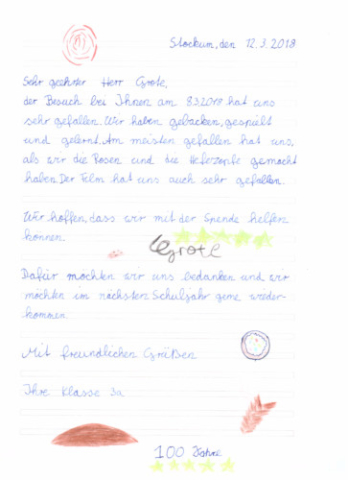 Stockum, den 12.3.2018
Sehr geehrter Herr Grote,
der Besuch bei Ihnen am 8.3.2018 hat uns
sehr gefallen. Wir haben gebacken, gespielt
und gelernt. Am meisten gefallen hat uns,
als wir die Rosen und die Hefezöpfe gemacht
haben. Der Film hat uns auch sehr gefallen.
Wir hoffen, dass wir mit der Spende helfen
können.
Grote
Dafür möchten wir uns bedanken und wir
möchten im nächsten Schuljahr gerne wieder-
kommen.
Mit freundlichen Grüßen
Ihre Klasse 3a
100 Jahre